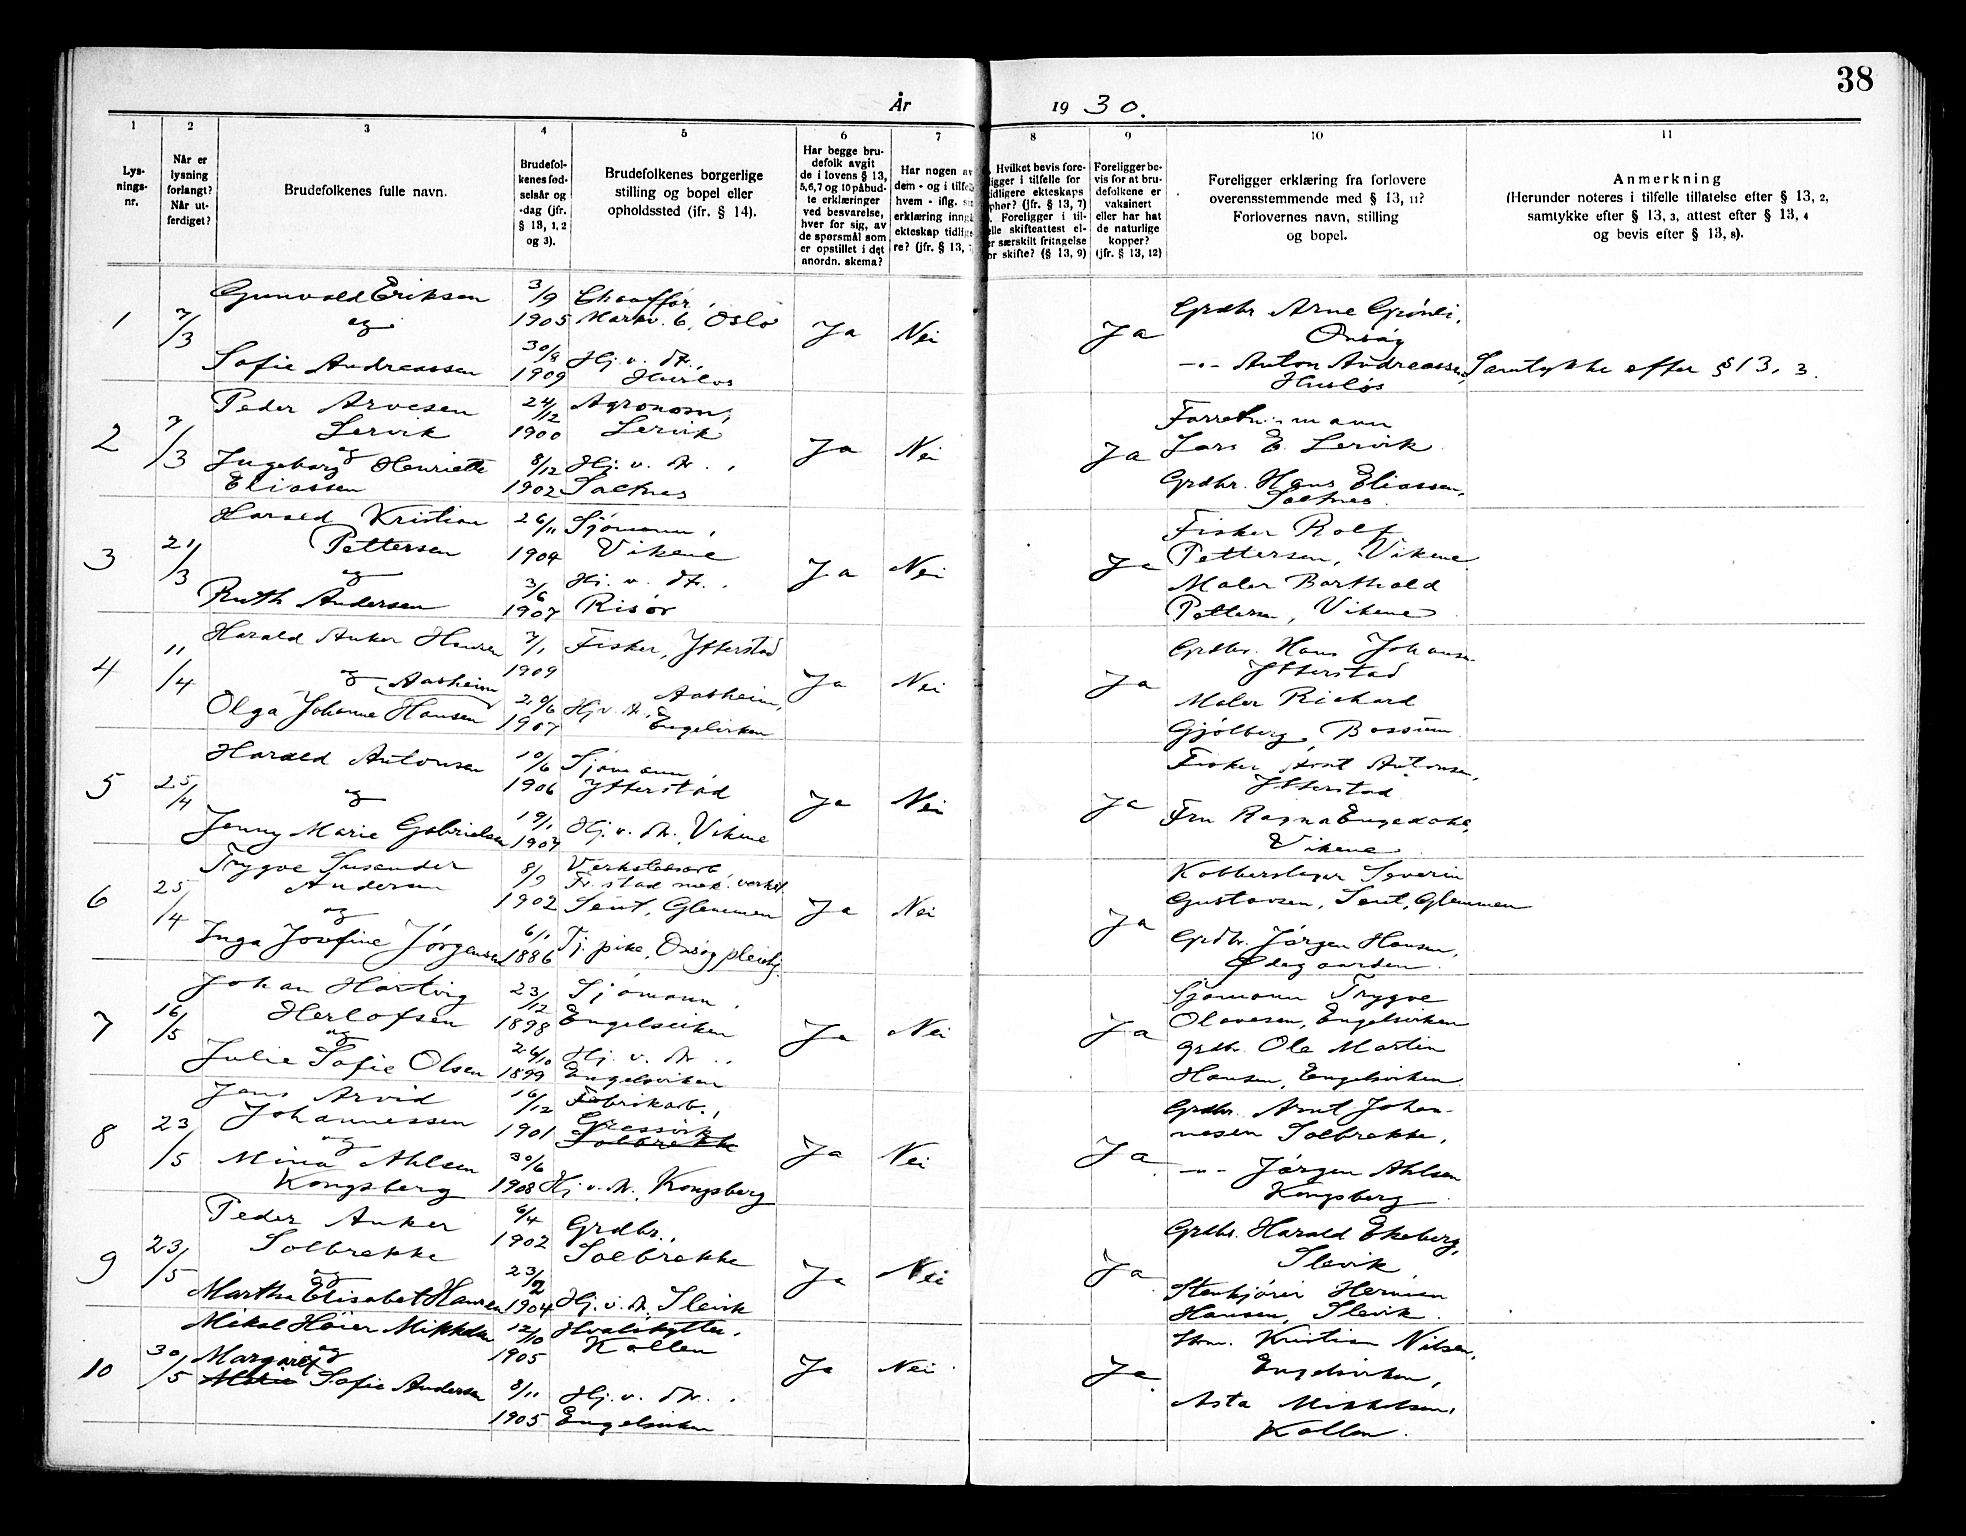 38
År 1930.
1 2 3 4 5 6 7 8 9 10 11
Lysningsnr.
Når er lysning forlangt? Når utferdiget?
Brudefolkenes fulle navn.
Brudefolkenes fødselsår og -dag (jfr. § 13, 1, 2 og 3).
Brudefolkenes borgerlige stilling og bopel eller opholdssted (ifr. § 14).
Har begge brudefolk avgit de i lovens § 13, 5,6,7 og 10 påbudte erklæringer ved besvarelse, hver for sig, av de spørsmål som er opstillet i det anordn. skema?
Har nogen av dem - og i tilfelle hvem - iflg. sin erklæring inngå ekteskap tidligere? (jfr. § 13,
Hvilket bevis foreligger i tilfelle for tidligere ekteskaps ophør? (jfr. § 13, 7) Foreligger i tilfelle skifteattest eller særskilt fritagelse for skifte? (§ 13, 9)
Foreligger bevis for at brudefolkene er vaksinert eller har hat de naturlige kopper? (jfr. § 13, 12)
Foreligger erklæring fra forlovere overensstemmende med § 13, 11? Forlovernes navn, stilling og bopel.
Anmerkning
(Herunder noteres i tilfelle tillatelse efter § 13, 2, samtykke efter § 13, 3, attest efter § 13, 4 og bevis efter § 13, 8).
1
7/3
Gunvald Eriksen
og
Sofie Andreassen
3/9
1905
30/8
1909
Chauffør,
Markv. 6, Oslo
Hj. v. dr.,
Husløs
Ja
Nei
Ja
Grdbr Arne Grønli,
Onsøy
-"- Anton Andreassen,
Husløs
Samtykke efter § 13, 3.
2
7/3
Peder Arvesen
Lervik
og
Ingeborg Henriette
Eliassen
24/12
1900
8/12
1902
Agronom,
Lervik
Hj. v. dr.,
Saltnes
Ja
Nei
Ja
Forretn.mann
Lars E. Lervik
Grdbr. Hans Eliassen,
Saltnes.
3
21/3
Harald Kristian
Pettersen
og
Ruth Andersen
26/11
1904
3/6
1907
Sjømann,
Vikene
Hj. v. dr.,
Risør
Ja
Nei
Ja
Fisker Rolf
Pettersen, Vikene
Maler Barthold
Pettersen, Vikene
4
11/4
Harald Anker Hansen
og Aasheim
Olga Johanne Hansen
7/1
1909
20/6
1907
Fisker, Ytterstad
Aasheim,
Hj. v. dr., Engelsviken
Ja
Nei
Ja
Grdbr. Hans Johansen
Ytterstad
Maler Richard
Gjølberg,
5
25/4
Harald Antonsen
og
Jenny Marie Gabrielsen
10/6
1906
19/1
1907
Sjømann,
Ytterstad
Hj. v. dr., Vikene
Ja
Nei
Ja
Fisker Arnt Antonsen,
Ytterstad
Fru Ragna Engedahl,
Vikene
6
25/4
Trygve Susander
Andersen
og
Inga Josefine Jørgensen
8/9
1902
6/1
1886
Verkstedsarb.
Fr.stad mek. verkst.
Sent, Glemmen
Tj.pike, Onsøy pleiehj.
Ja
Nei
Ja
Kobberslager Severin
Gustavsen, Sent, Glemmen
Grdbr. Jørgen Hansen,
Ødegaarden.
7
16/5
Johan Hartvig
Herlofsen
og
Julie Sofie Olsen
23/12
1898
26/10
1899
Sjømann,
Engelsviken
Hj. v. dr.,
Engelsviken
Ja
Nei
Ja
Sjømann Trygve
Olavesen, Engelsviken
Grdbr. Ole Martin
Hansen, Engelsviken
8
23/5
Jens Arvid
Johannessen
og
Mina Ahlsen
Kongsberg
16/12
1901
30/6
1908
Fabrikarb.,
Gressvik
Solbrekke
Hj. v. dr., Kongsberg
Ja
Nei
Ja
Grdbr. Arnt Johannesen
Solbrekke,
-"- Jørgen Ahlsen
Kongsberg
9
23/5
Peder Anker
Solbrekke
og
Martha Elisabet Hansen
6/4
1902
23/2
1904
Grdbr.,
Solbrekke
Hj. v. dr. Slevik
Ja
Nei
Ja
Grdbr. Harald Ekeberg,
Slevik
Stenkjører Herman
Hansen, Slevik.
10
30/5
Mikal Høier Mikkelsen
og
Margaret
Marie Sofie Andersen
12/10
1905
8/11
1905
Hvalskytter,
Kallen
Hj. v. dr.,
Engelsviken
Ja
Nei
Ja
Kristian Nilsen,
Engelsviken,
Asta Mikkelsen,
Kollen.